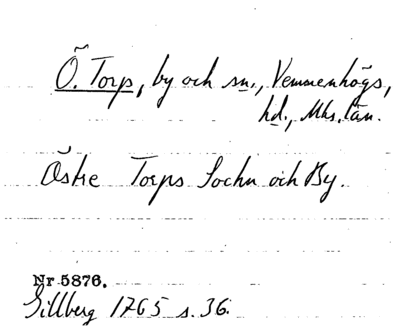 Ö. Torp, by och sn., Vemmenhögs,
hd., Mhs. län.
Östre Torps Sochn och By.
Nr 5876.
Gillberg 1765 s. 36.